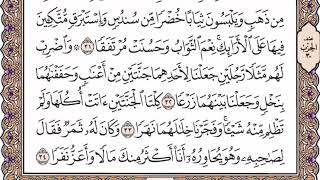 مِّن ذَهَبٍ وَيَلْبَسُونَ ثِيَابًا خُضْرًا مِّن سُندُسٍ وَإِسْتَبْرَقٍ مُّتَّكِـِٔينَ
فِيهَا عَلَى ٱلْأَرَآئِكِ ۚ نِعْمَ ٱلثَّوَابُ وَحَسُنَتْ مُرْتَفَقًا ٣١ ۞ وَٱضْرِبْ
لَهُم مَّثَلًا رَّجُلَيْنِ جَعَلْنَا لِأَحَدِهِمَا جَنَّتَيْنِ مِنْ أَعْنَٰبٍ وَحَفَفْنَٰهُمَا
بِنَخْلٍ وَجَعَلْنَا بَيْنَهُمَا زَرْعًا ٣٢ كِلْتَا ٱلْجَنَّتَيْنِ ءَاتَتْ أُكُلَهَا وَلَمْ
تَظْلِم مِّنْهُ شَيْـًٔا ۚ وَفَجَّرْنَا خِلَٰلَهُمَا نَهَرًا ٣٣ وَكَانَ لَهُۥ ثَمَرٌ فَقَالَ
لِصَٰحِبِهِۦ وَهُوَ يُحَاوِرُهُۥٓ أَنَا۠ أَكْثَرُ مِنكَ مَالًا وَأَعَزُّ نَفَرًا ٣٤